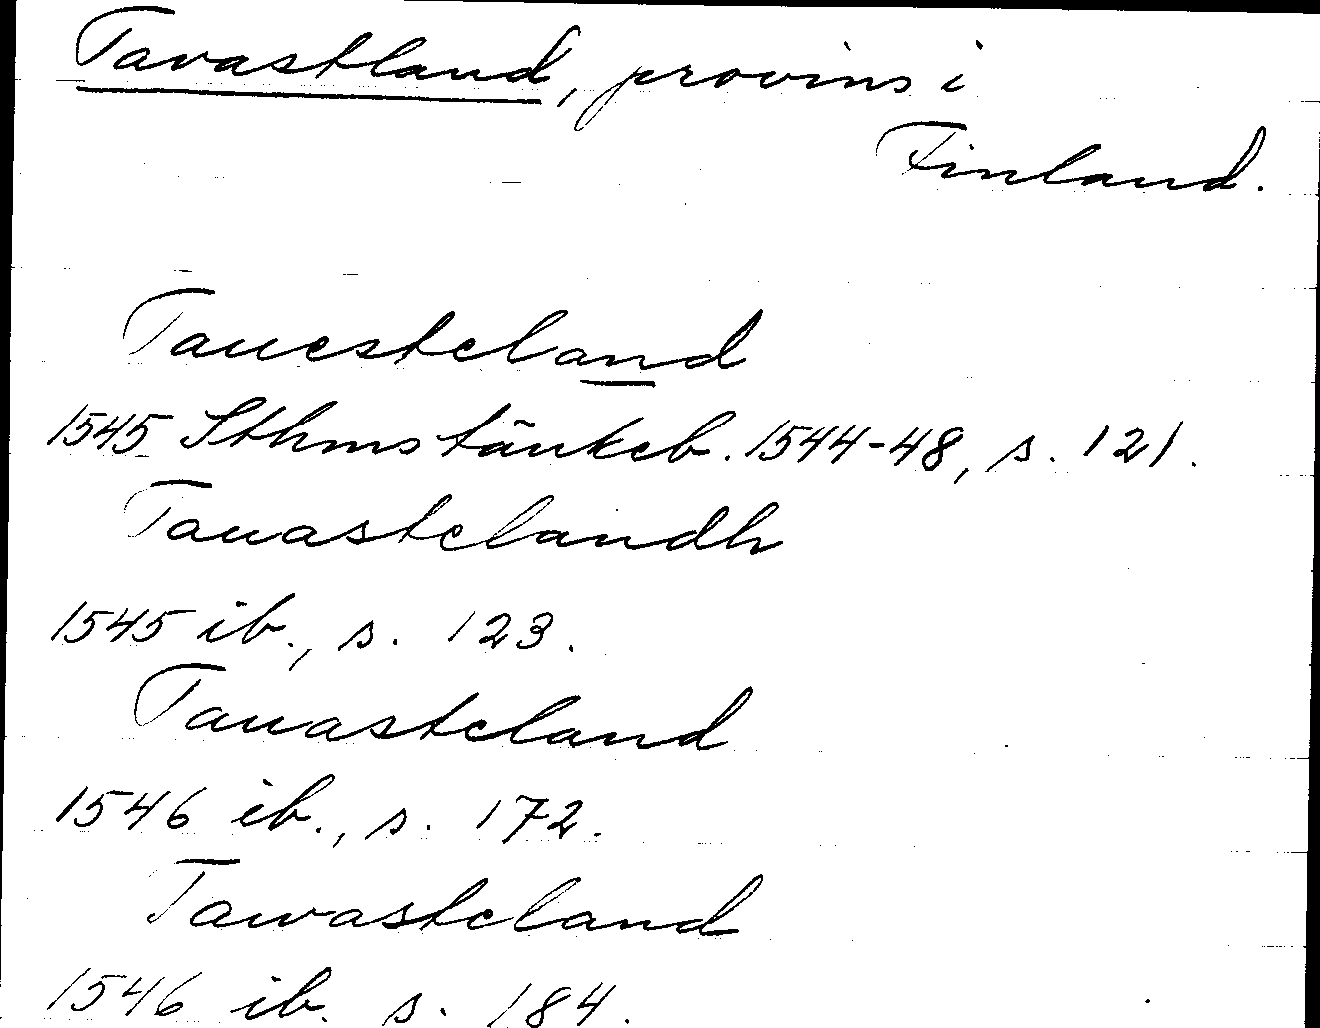 Tavastland, provins i
Finland.
Tauesteland
1545 Sthms tänkeb. 1544-48, s. 121.
Tauastelandh
1545 ib., s. 123.
Tauasteland
1546 ib., s. 172.
Tawasteland
1546 ib. s. 184.